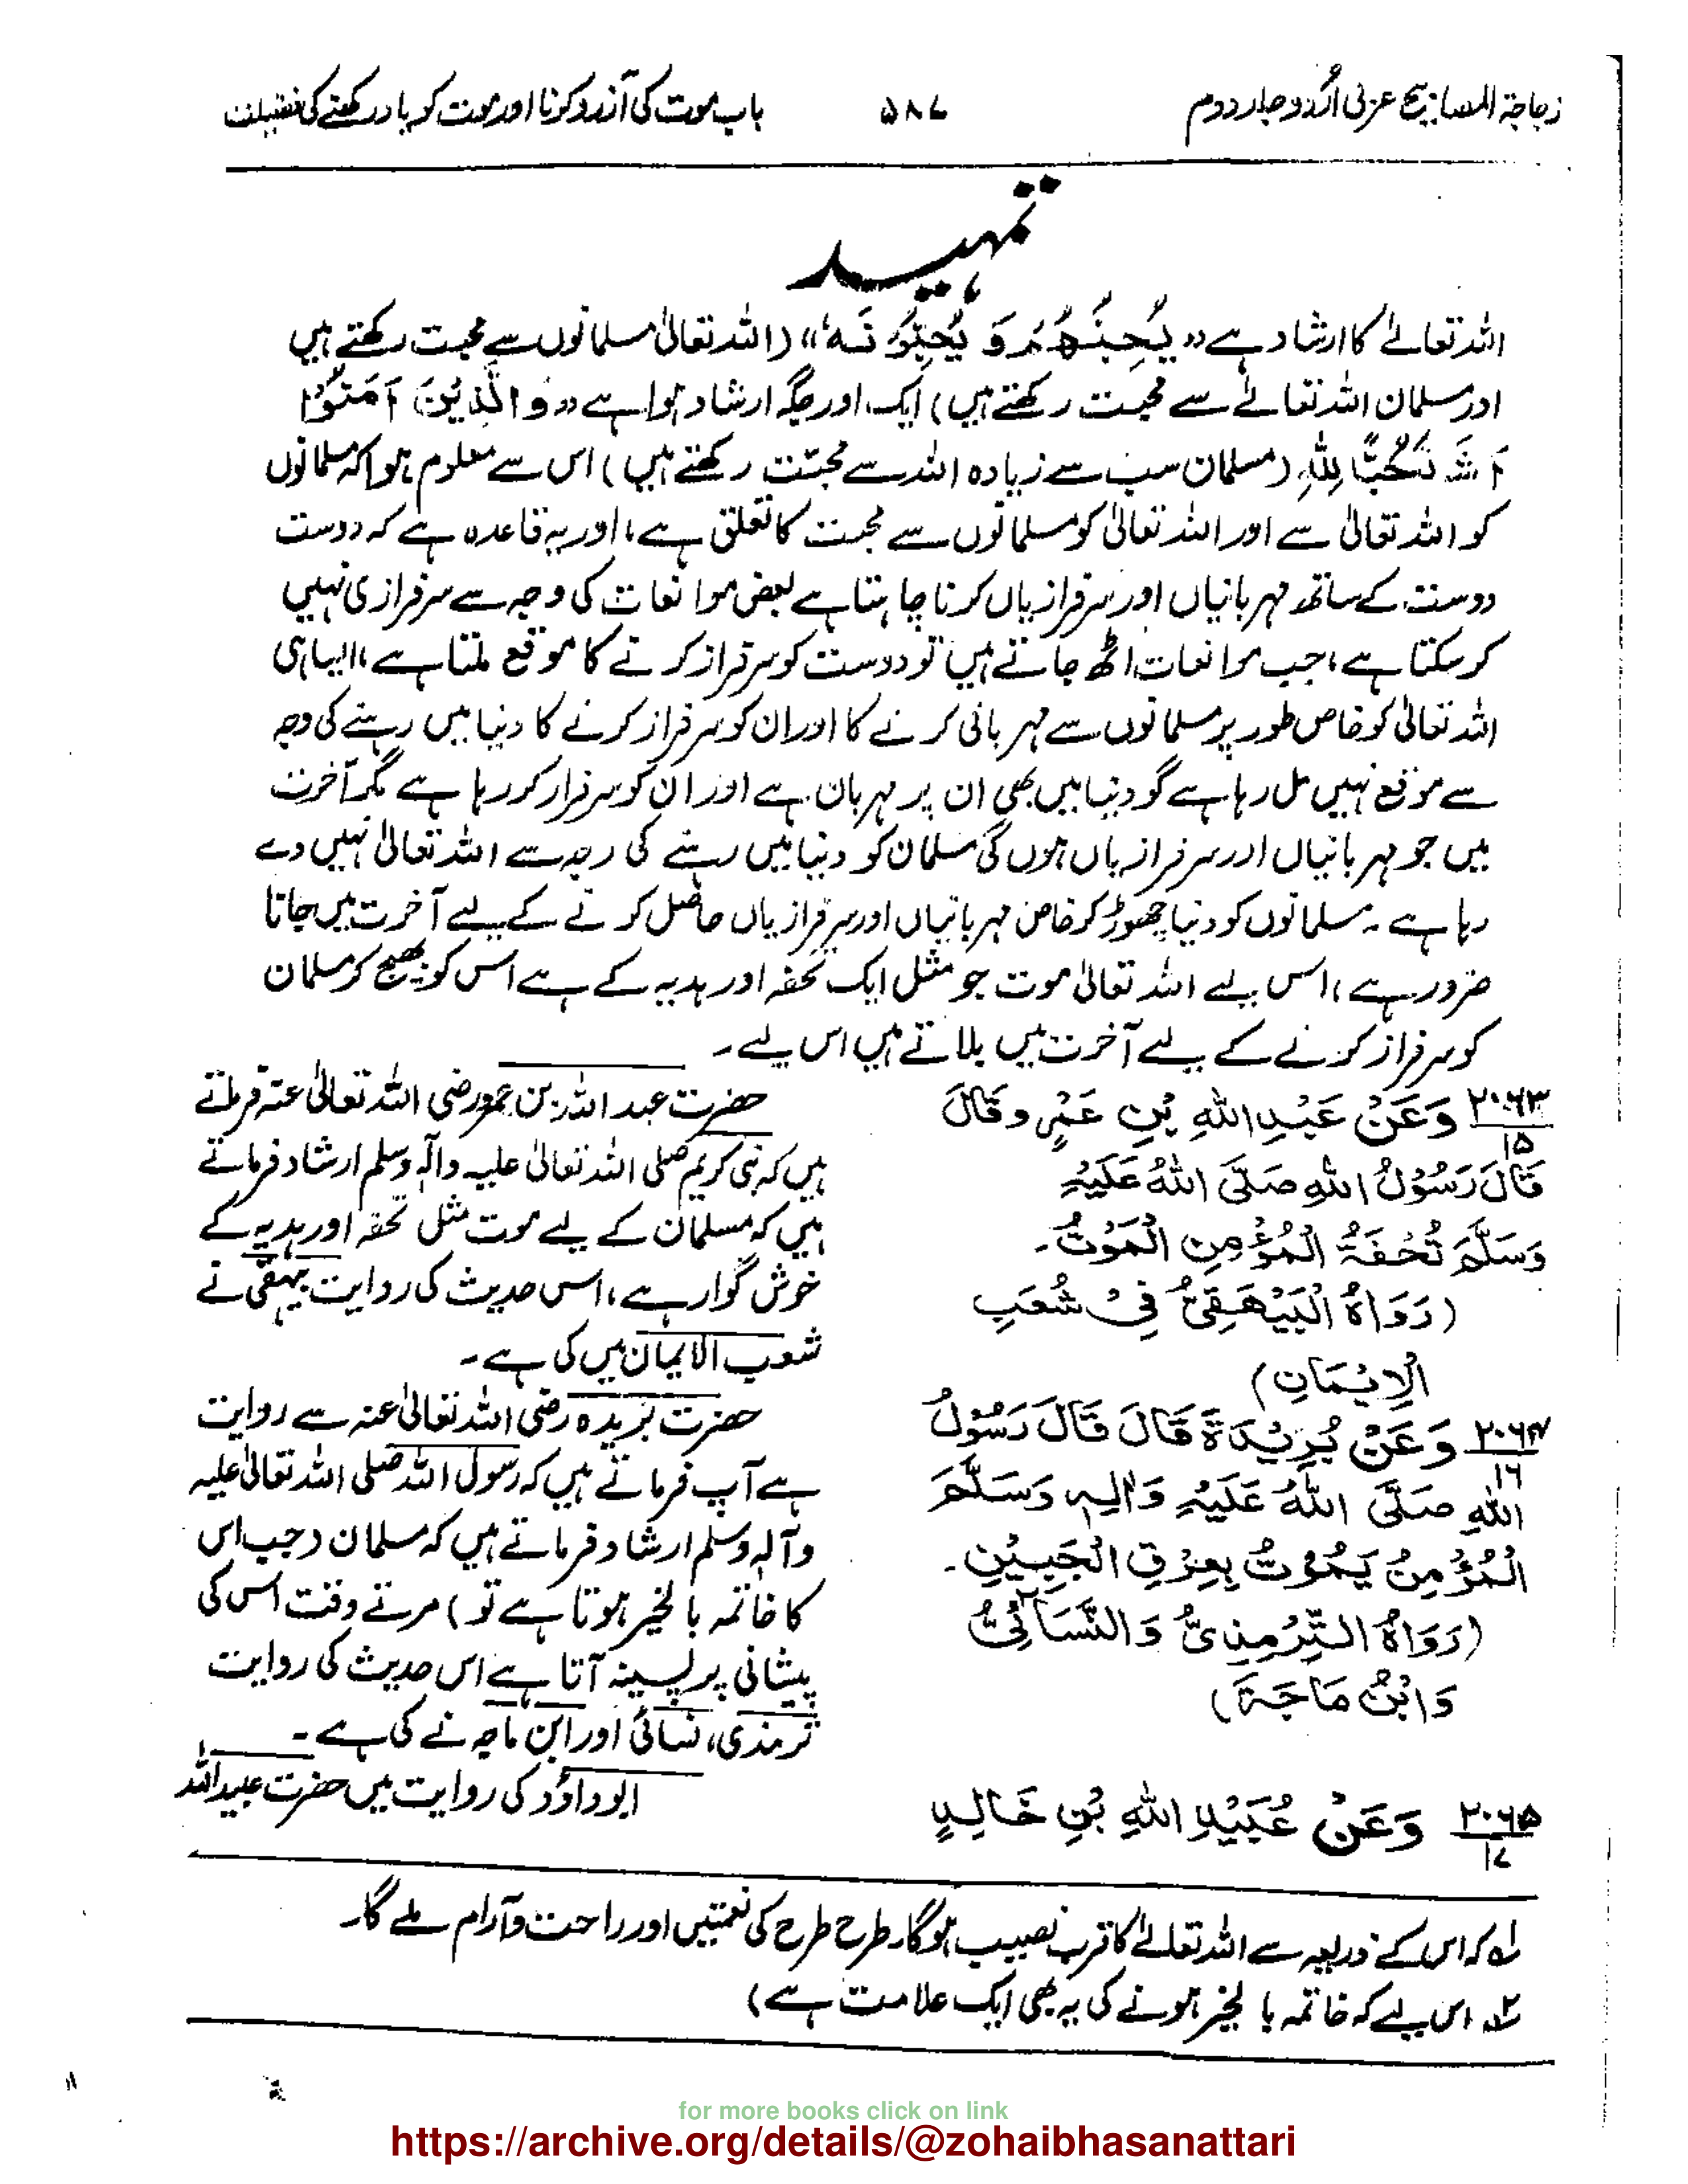 زجاجۃ المصابیح عربی اُردو جلد دوم
۵۸۷
باب موت کی آرزو کرنا اور موت کو یاد رکھنے کی فضیلت
تمہید
اللہ تعالےٰ کا ارشاد ہے «یُحِبُّھُمْ وَ یُحِبُّوْنَہٗ» (اللہ تعالیٰ مسلمانوں سے محبت رکھتے ہیں
اور مسلمان اللہ تعالےٰ سے محبت رکھتے ہیں) ایک اور جگہ ارشاد ہوا ہے «وَالَّذِیْنَ اٰمَنُوْا
اَشَدُّ حُبًّا لِلّٰہِ (مسلمان سب سے زیادہ اللہ سے محبّت رکھتے ہیں) اس سے معلوم ہوا کہ مسلمانوں
کو اللہ تعالیٰ سے اور اللہ تعالیٰ کو مسلمانوں سے محبت کا تعلق ہے، اور یہ قاعدہ ہے کہ دوست
دوست کے ساتھ مہربانیاں اور سرفرازیاں کرنا چاہتا ہے بعض موانعات کی وجہ سے سرفرازی نہیں
کر سکتا ہے، جب موانعات اٹھ جاتے ہیں تو دوست کو سرفراز کرنے کا موقع ملتا ہے، ایسا ہی
اللہ تعالیٰ کو خاص طور پر مسلمانوں سے مہربانی کرنے کا اور ان کو سرفراز کرنے کا دنیا میں رہنے کی وجہ
سے موقع نہیں مل رہا ہے گو دنیا میں بھی ان پر مہربان ہے اور ان کو سرفراز کر رہا ہے مگر آخرت
میں جو مہربانیاں اور سرفرازیاں ہوں گی مسلمان کو دنیا میں رہنے کی وجہ سے اللہ تعالیٰ نہیں دے
رہا ہے ۔ مسلمانوں کو دنیا چھوڑ کر خاص مہربانیاں اور سرفرازیاں حاصل کرنے کے لیے آخرت میں جانا
ضرور ہے، اس لیے اللہ تعالیٰ موت جو مثل ایک تحفہ اور ہدیہ کے ہے اس کو بھیج کر مسلمان
کو سرفراز کرنے کے لیے آخرت میں بلاتے ہیں اس لیے ۔
۲۰۶۳
۱۵
وَعَنْ عَبْدِ اللهِ بْنِ عَمْرٍو قَالَ
قَالَ رَسُوْلُ اللهِ صَلَّى اللهُ عَلَيْهِ
وَسَلَّمَ تُحْفَةُ الْمُؤْمِنِ الْمَوْتُ۔
(رَوَاهُ الْبَيْهَقِيُّ فِيْ شُعَبِ
الْاِيْمَانِ)
حضرت عبد اللہ بن عمرو رضی اللہ تعالیٰ عنہ فرماتے
ہیں کہ نبی کریم صلی اللہ تعالیٰ علیہ وآلہٖ وسلم ارشاد فرماتے
ہیں کہ مسلمان کے لیے موت مثل تحفہ اور ہدیہ کے
خوش گوار ہے، اس حدیث کی روایت بیہقی نے
شعب الایمان میں کی ہے ۔
۲۰۶۴
۱۶
وَعَنْ بُرَيْدَةَ قَالَ قَالَ رَسُوْلُ
اللهِ صَلَّى اللهُ عَلَيْهِ وَاٰلِهٖ وَسَلَّمَ
الْمُؤْمِنُ يَمُوْتُ بِعِرْقِ الْجَبِيْنِ۔
(رَوَاهُ التِّرْمِذِيُّ وَالنَّسَآئِيُّ
وَابْنُ مَاجَةَ)
حضرت بریدہ رضی اللہ تعالیٰ عنہ سے روایت
ہے آپ فرماتے ہیں کہ رسول اللہ صلی اللہ تعالیٰ علیہ
وآلہٖ وسلم ارشاد فرماتے ہیں کہ مسلمان (جب اس
کا خاتمہ بالخیر ہوتا ہے تو) مرتے وقت اس کی
پیشانی پر پسینہ آتا ہے اس حدیث کی روایت
ترمذی، نسائی اور ابن ماجہ نے کی ہے ۔
۲۰۶۵
۱۷
وَعَنْ عُبَيْدِ اللهِ بْنِ خَالِدٍ
ابوداؤد کی روایت میں حضرت عبید اللہ
لہ کہ اس کے ذریعہ سے اللہ تعالےٰ کا قرب نصیب ہوگا۔ طرح طرح کی نعمتیں اور راحت و آرام ملے گا۔
لہ اس لیے کہ خاتمہ بالخیر ہونے کی یہ بھی ایک علامت ہے)
for more books click on link
https://archive.org/details/@zohaibhasanattari